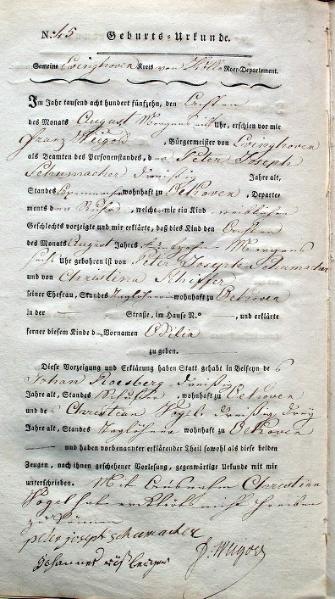 N. 45 Geburts-Urkunde.
Gemeine Kreis von Roer-Departement.
Im Jahr tausend acht hundert fünfzehn, den Ersten
des Monats August Morgens Uhr, erschien vor mir
Franz Weigold, Bürgermeister von
als Beamten des Personenstandes, der Peter Joseph
Schumacher dreissig Jahre alt,
Standes wohnhaft zu Oekoven, Departe-
ments der Ruhr, welcher mir ein Kind weiblichen
Geschlechts vorzeigte und mir erklärte, daß dies Kind den Ersten
des Monats August Jahres Morgens
Uhr gebohren ist von Peter Joseph Schumacher
und von Christina Scheffer
seiner Ehefrau, Standes Taglöhner wohnhaft zu Oekoven
in der Straße, im Hause N.º und erklärte
ferner diesem Kinde den Vornamen Odilia
zu geben.
Diese Vorzeigung und Erklärung haben Statt gehabt in Beiseyn des
Johan dreissig
Jahre alt, Standes wohnhaft zu Oekoven
und des Christian Vogel dreissig drey
Jahre alt, Standes Taglöhner wohnhaft zu Oekoven
und haben vorbenannter erklärender Theil sowohl als diese beiden
Zeugen, nach ihnen geschehener Vorlesung, gegenwärtige Urkunde mit mir
unterschrieben. Mit Christian
Vogel hat erklärt nicht schreiben
zu können
peter joseph schumacher
johannes